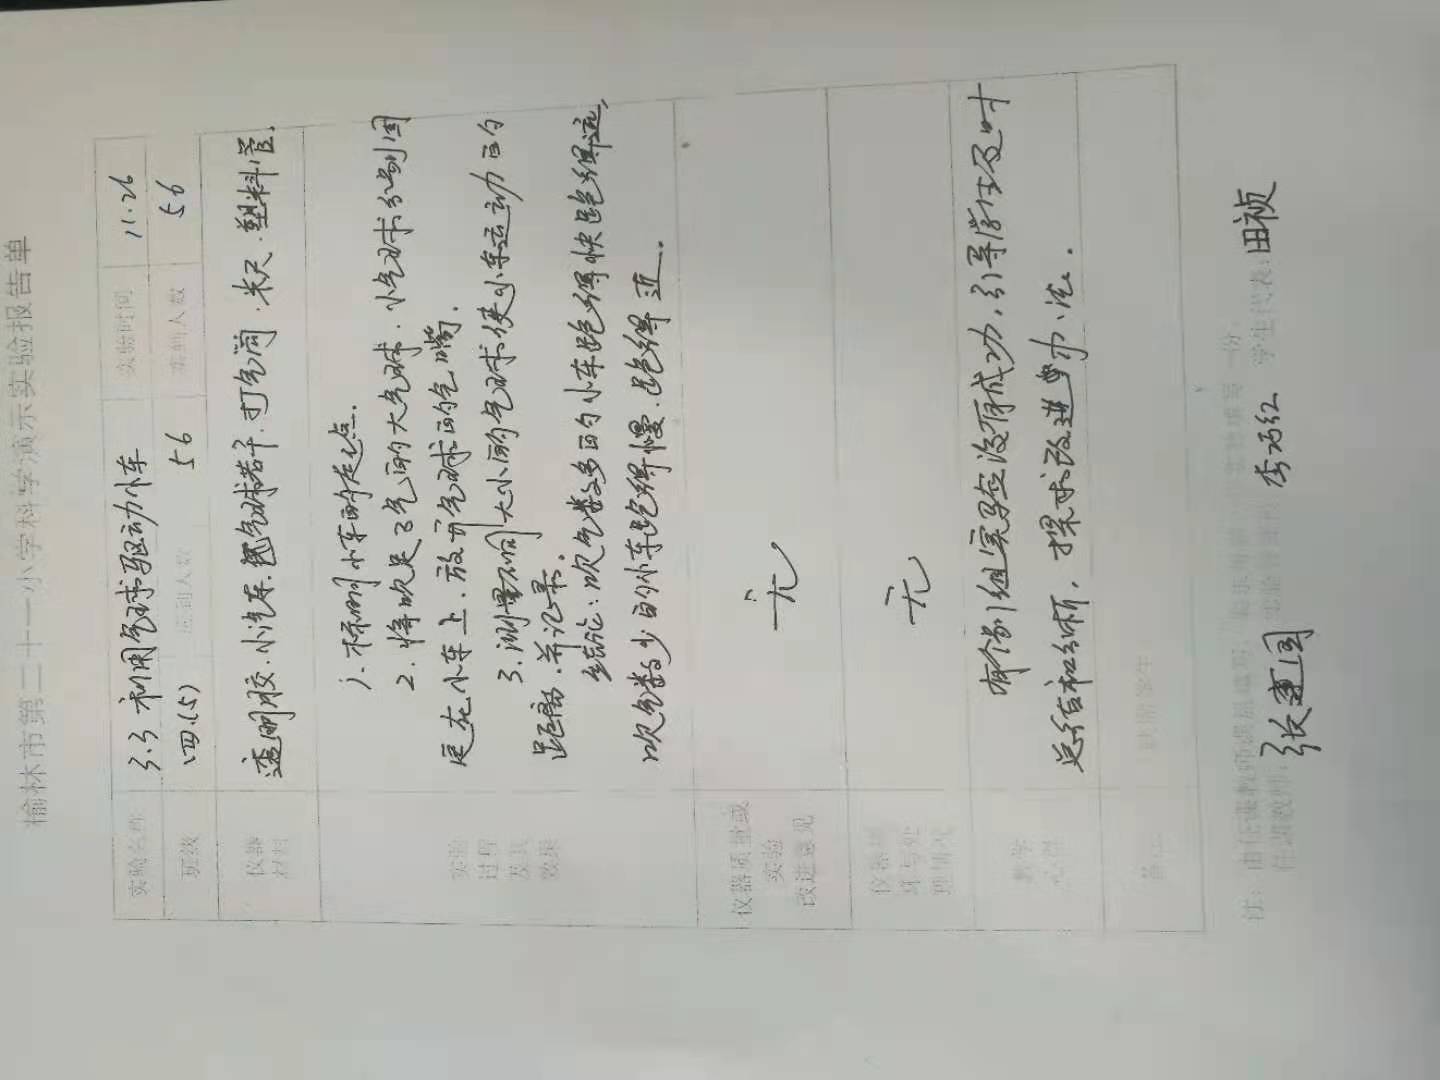 榆林市第二十一小学科学演示实验报告单
实验名称 3.3 利用气球驱动小车 实验时间 11.26
班级 四.(5) 应到人数 56 实到人数 56
仪器材料 透明胶.小汽车.气球若干.打气筒.米尺.塑料管.
实验过程及其效果
1.标明小车的起点.
2.将吹足了气的大气球.小气球分别固
定在小车上.放开气球的气嘴.
3.测量不同大小的气球使小车运动的
距离.并记录.
结论:吹气数多的小车跑得快跑得远,
吹气数少的小车跑得慢.跑得近.
仪器质量或实验改进意见 无
仪器损坏与处理情况 无
教学心得 有个别组实验没有成功,引导学生及时
总结和分析,探求改进办法.
备注
注:由任课教师课后填写
任课教师: 张建国 实验管理员: 学生代表: 田祯